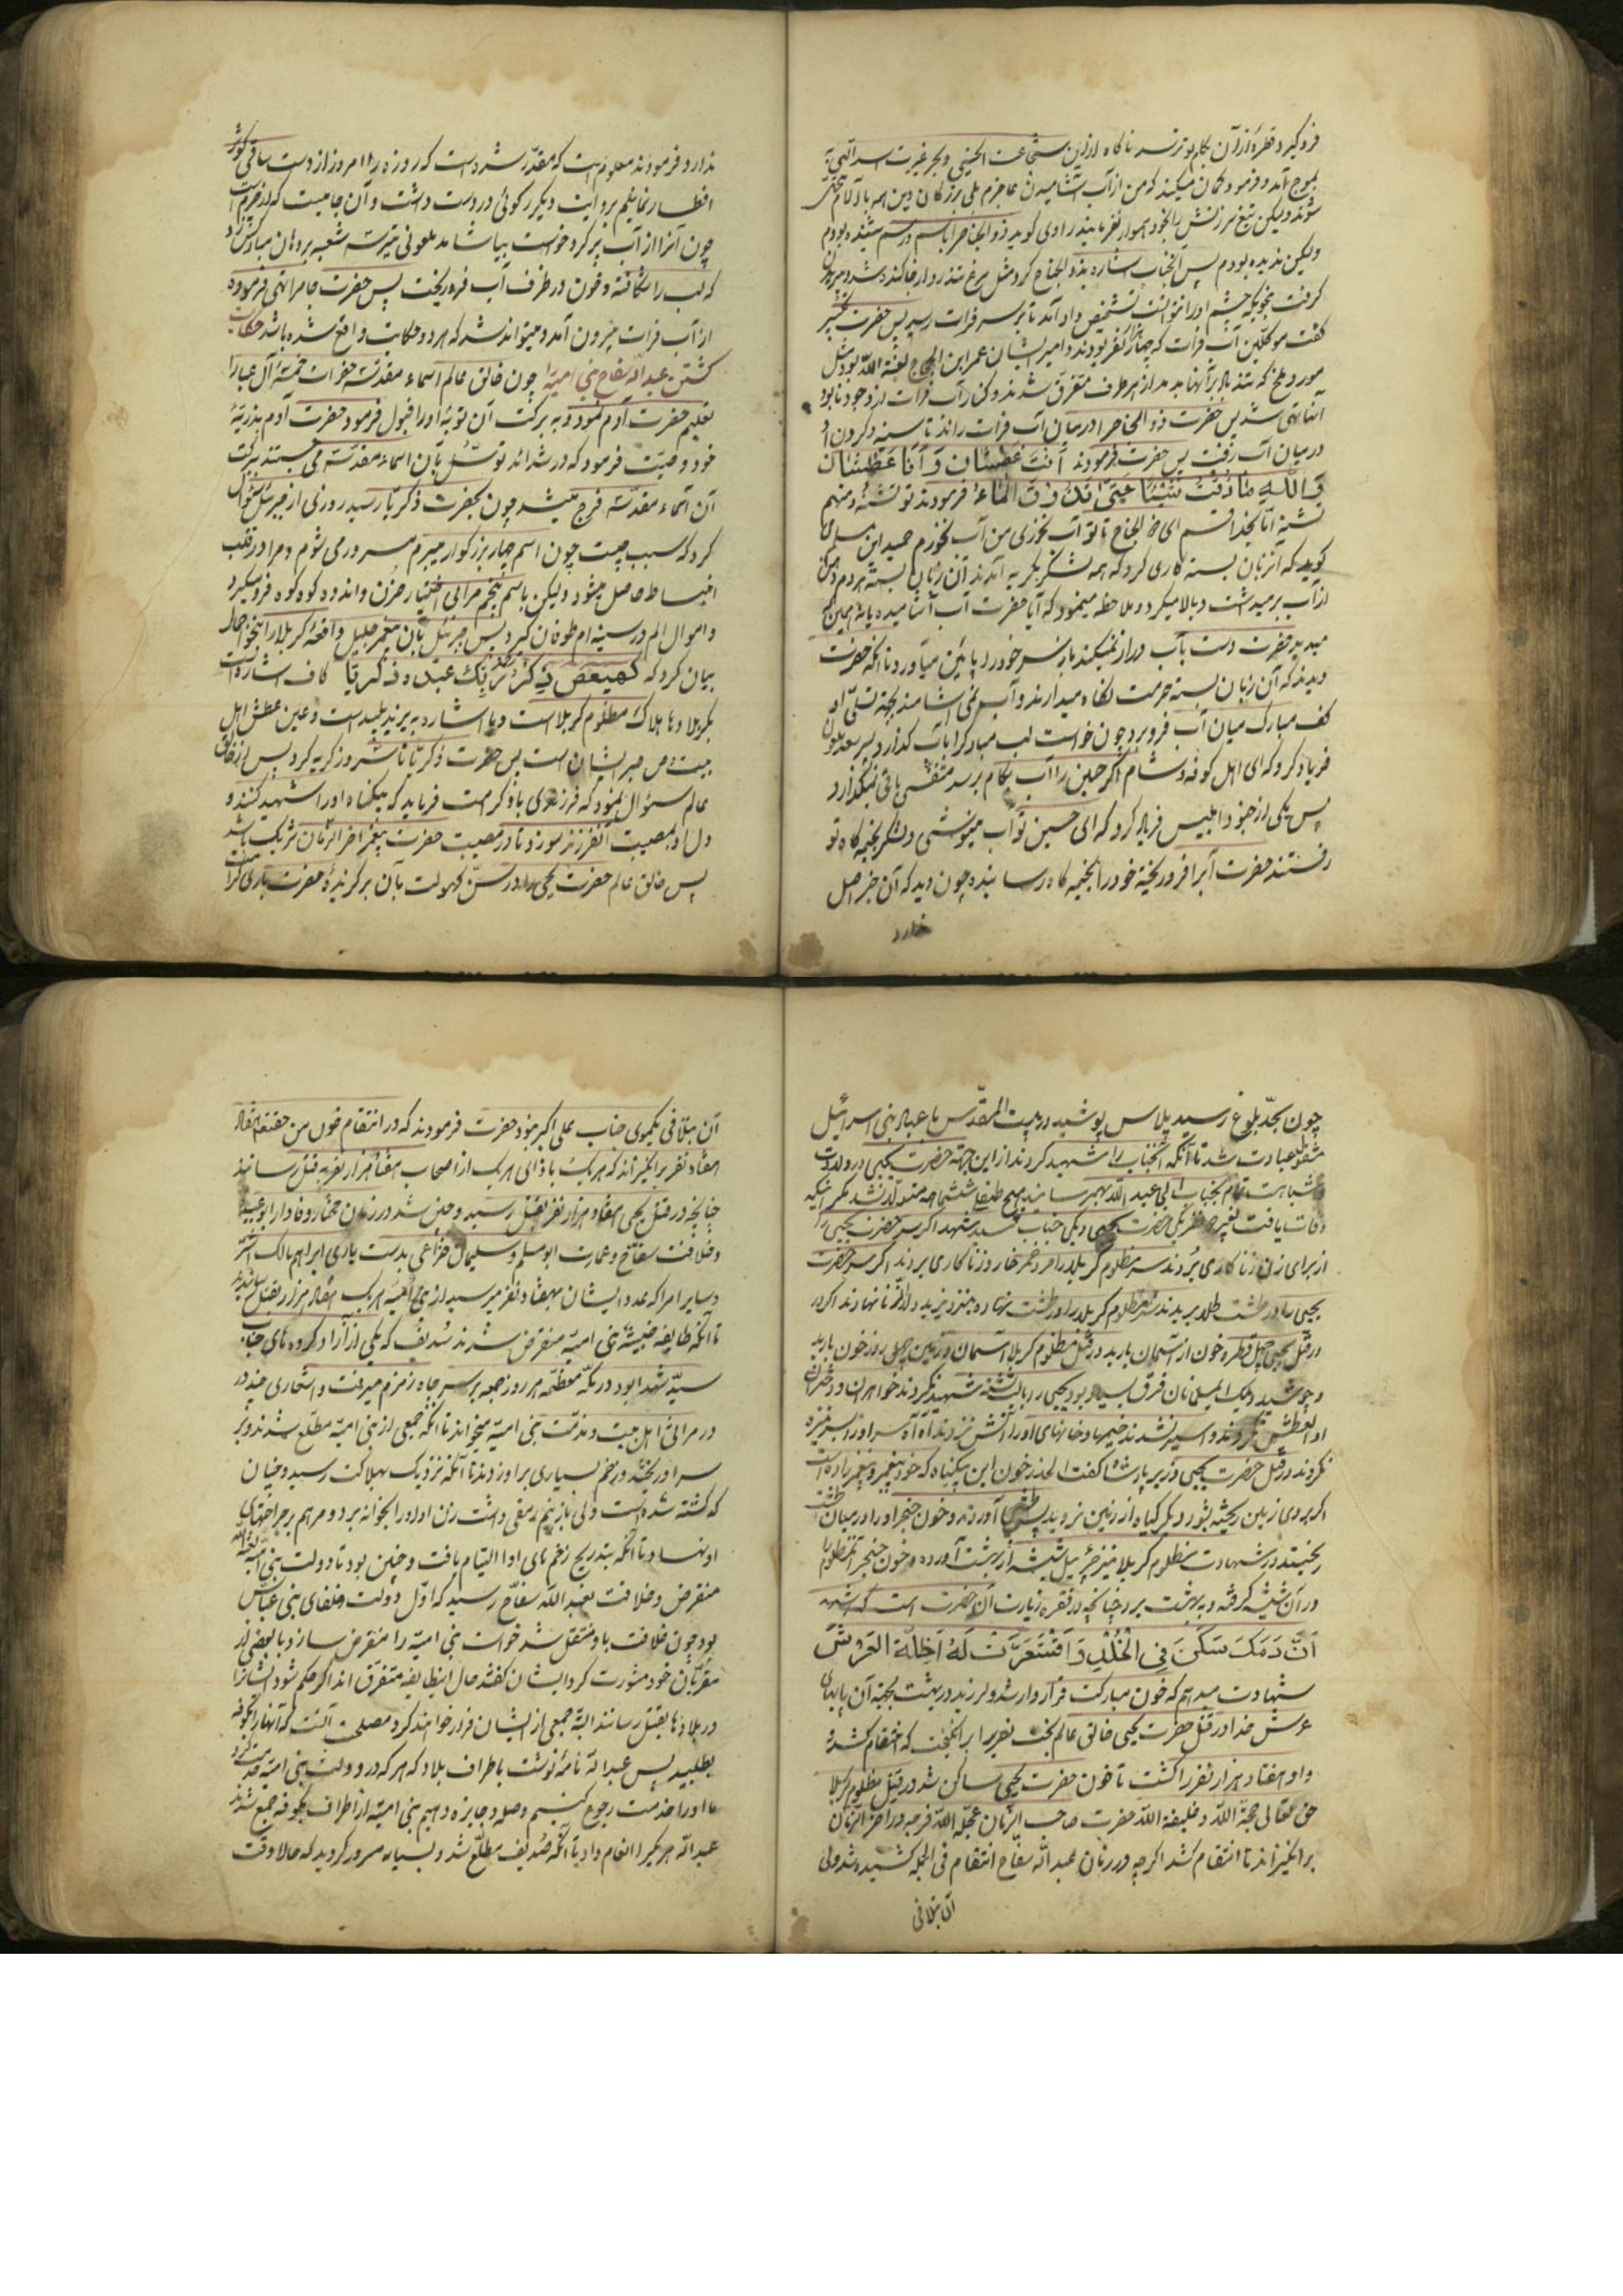 فروکیرد قطرهٔ از آن بکام او نرسد ناکاه از این شجاعت الحسینی و بحر غیرت اسد اللهی
بموج آمد و فرمود کمان میکنید که من از آب آشامیدن عاجزم بلی بزرکان دین همه با آلام
شوند ولیکن تیغ سرزنش را بخود هموار نفرمایند راوی کوید ذو الجناح را باسم و رسم شنیده بودم
ولیکن ندیده بودم پس آنجناب اشاره بذو الجناح کرد مثل مرغ تند رو از جا کنده شد و
کرفت بنحویکه چشم او را نتوانست تشخیص داد آمد تا بر سر فرات رسید پس حضرت تکبیر
گفت موکلین آب فرات که چهار هزار نفر بودند و امیر ایشان عمر ابن الحجاج لعنة الله بود مثل
مور و ملخ که تند باد بر آنها بدمد از هر طرف متفرق شدند و کنار آب فرات از وجود ناپود
آنها تهی شد پس حضرت ذو الجناح را در میان آب فرات راند تا سینه و کردن او
در میان آب رفت پس حضرت فرمودند اَنْتَ عَطْشان وَ اَنَا عَطْشان
وَ اللّهِ ما ذُقْتُ شَیْئًا حَتّی اَنْکَ ذُقْ الْماءَ فرمودند تو تشنهٔ و منهم
تشنه امّا بخدا قسم ای ذو الجناح تا تو آب نخوری من آب نخورم حمید ابن مسلم
کوید که آنزبان بسته کاری کرد که همه لشکر بکریه آمدند آن زبان بسته هر دم دهن
از آب برمیداشت و بالا میکرد و ملاحظه مینمود که آیا حضرت آب آشامیده یا نه همین که
میدید حضرت دست بآب دراز نمیکند باز سر خود را پائین میآورد تا آنکه حضرت
دیدند که آن زبان بسته حرمت نکاه میدارند و آب نمی آشامند بجهة تسلّی او
کف مبارک میان آب فرو برد چون خواست لب مبارک را بآب کذارد پسر سعد ملعون
فریاد کرد که ای اهل کوفه و شام اکر حسین را آب بکام برسد متنفسی باقی نمیکذارد
پس یکی از جنود ابلیس فریاد کرد که ای حسین تو آب مینوشی و لشکر بخیمه کاه تو
رفتند حضرت آبرا فرو ریخته خود را بخیمه کاه رسانیده چون دید که آن خبر اصل
ندارد
ندارد و فرمودند معلوم است که مقدّر شده است که روزه را امروز از دست ساقی کوثر
افطار نمایم بروایت دیکر رکوئی در دست داشت و آن جامیست که از چرم است
چون آنرا از آب پر کرد خواست بیاشامد ملعونی تیر سه شعبه بر دهان مبارکش زد
که لب را شکافته و خون در ظرف آب فرو ریخت پس حضرت جام را تهی فرموده
از آب فرات بیرون آمد و میتواند شد که هر دو حکایت واقع شده باشد حکایت
کشتن عبد الله سفاح بنی امیه را چون خالق عالم اسماء مقدسه حضرات خمسهٔ آل عبا را
تعلیم حضرت آدم نمود و به برکت آن توبهٔ او را قبول فرمود حضرت آدم بذریهٔ
خود وصیت فرمود که در شدائد توسّل بآن اسماء مقدسه می جستند ببرکت
آن اسماء مقدسه فرج میشد چون بحضرت ذکریّا رسید روزی از جبرئیل سؤال
کرد که سبب چیست چون اسم چهار بزرکوار میبرم مسرور می شوم و مرا در قلب
انبساط حاصل میشود ولیکن باسم پنجم مرا بی اختیار حزن و اندوه کوه کوه فرو میکیرد
و اموال الم در سینه ام طوفان کیرد پس جبرئیل بآن پیغمبر جلیل واقعهٔ کربلا را بنحو اجمال
بیان کرد که کهیعص ذِکْرُ رَحْمَةِ رَبِّکَ عَبْدَهُ زَکَرِیّا کاف اشاره است
بکربلا و ها هلاک مظلوم کربلا است و یا اشاره به یزید پلید است و عین عطش اهل
بیت و ص صبر ایشان است پس حضرت ذکریّا تا سه روز کریه کرد پس از خالق
عالم سؤال نمود که فرزندی باو کرامت فرماید که بیکناه او را شهید کنند و
دل او بمصیبت آنفرزند سوزد تا در مصیبت حضرت پیغمبر آخر الزّمان شریک باشد
پس خالق عالم حضرت یحیی را در سنّ کهولت بآن برکزیدهٔ حضرت باری کرامت
چون بحدّ بلوغ رسید پلاس پوشید در بیت المقدّس با عباد بنی اسرائیل
مشغول عبادت شد تا آنکه آنجناب را شهید کردند از این جهة حضرت یحیی در ولادت
و شباهت تمام بجناب ابی عبد الله بهم رسانید هیچ طفل ششماهه متولّد نشد مکر اینکه
وفات یافت بغیر دو نفر یکی حضرت یحیی و یکی جناب سید شهدا اکر سر حضرت یحیی را
از برای زن زنا کاری بردند سر مظلوم کربلا را مرد خمر خار و زنا کاری بردند اکر سر حضرت
یحیی را در طشت طلا بریدند سر مظلوم کربلا را در طشت نهاده بنزد یزید ولد الزنا نهادند اکر در
در قتل یحیی چهل قطره خون از آسمان بارید در قتل مظلوم کربلا آسمان و زمین چهل روز خون بارید
و جوشید ولیک ایمسلمانان فرق بسیار بود یحیی را با لب تشنه شهید نکردند خواهران و دختران
او العطش نکردند و اسیر نشدند خیمها و خانهای او را آتش نزدند آه آه سر او را بر سر نیزه
نکردند در قتل حضرت یحیی وزیر پادشاه کفت الحذر خون این بیکناه که خود پیغمبر و پیغمبر زاده است
اکر بروی زمین ریخته شود دیکر کیاه از زمین نروید پس طشتی آوردند و خون حنجر او را در میان طشت
ریختند در شهادت مظلوم کربلا نیز جبرئیل شیشه از بهشت آورده و خون حنجر آنمظلوم را
در آن شیشه کرفته و به بهشت برد چنانچه در فقره زیارت آن حضرت است که اشهد
اَنَّ دَمَکَ سَکَنَ فِی الْخُلْدِ وَ اقْشَعَرَّتْ لَهُ اَظِلَّةُ الْعَرْشِ
شهادت میدهم که خون مبارکت قرار وارشد و لرزید در بهشت بجهة آن پایهای
عرش خدا در قتل حضرت یحیی خالق عالم بخت نصر را بر انکیخت که انتقام کشد
و او هفتاد هزار نفر را کشت تا خون حضرت یحیی ساکن شد در قتل مظلوم کربلا
حق تعالی حجة الله و خلیفة الله حضرت صاحب الزّمان عجّل الله فرجه در آخر الزّمان
بر انکیزاند تا انتقام کشد اکر چه در زمان عبد الله سفّاح انتقام فی الجمله کشیده شد ولی
آن بتلافی
آن بتلافی یکموی جناب علی اکبر نبود حضرت فرمودند که در انتقام خون من حقتعالی هفتاد
هفتاد نفر بر انکیزاند که هر یک باذای هر یک از اصحاب هفتاد هزار نفر بقتل رسانند
چنانچه در قتل یحیی هفتاد هزار نفر بقتل رسید و چنین شد در زمان مختار وفادار ابو عبیده
و خلافت سفّاح و عمارت ابو مسلم و سلیمان خزاعی بدست یاری ابراهیم مالک اشتر
و سایر امرا که عدد ایشان بهفتاد نفر میرسید از بنی امیّه هر یک هفتاد هزار بقتل رسانیدند
تا آنکه طایفه خبیثهٔ بنی امیّه منقرض شدند سُدیف که یکی از آزاد کرده های جناب
سیّد شهدا بود در مکّه معظّمه هر روز جمعه بر سر چاه زمزم میرفت و اشعاری چند در
در مراثی اهل بیت و مذمّت بنی امیّه میخواند تا آنکه جمعی از بنی امیّه مطلّع شدند و بر
سر او ریختند و زخم بسیاری بر او زدند تا آنکه نزدیک بهلاکت رسید و چنان
که کشته شده است ولی باز نیم رمقی داشت زن او او را بخانه برد و مرهم بر جراحتهای
او نهاد تا آنکه بتدریج زخم های او التیام یافت و چنین بود تا دولت بنی امیّه لعنهم الله
منقرض و خلافت بعبد الله سفّاح رسید که اوّل دولت خلفای بنی عباس
بود چون خلافت باو منتقل شد خواست بنی امیّه را منقرض سازد با بعضی از
مقرّبان خود مشورت کرد ایشان کفتند حال اینطایفه متفرق اند اکر حکم شود ایشانرا
در بلادها بقتل رسانند البتّه جمعی از ایشان فرار خواهند کرد مصلحت آنست که آنها را بکوفه
بطلبید پس عبد الله نامهٔ نوشت باطراف بلاد که هر که در دولت بنی امیّه خدمت کرد
ما او را خدمت رجوع کنیم وصله و جایزه دهیم بنی امیّه از اطراف بکوفه جمع شدند
عبد الله هر یکرا انعام داد تا آنکه سُدیف مطلّع شد و بسیار مسرور کردید که حالا وقت